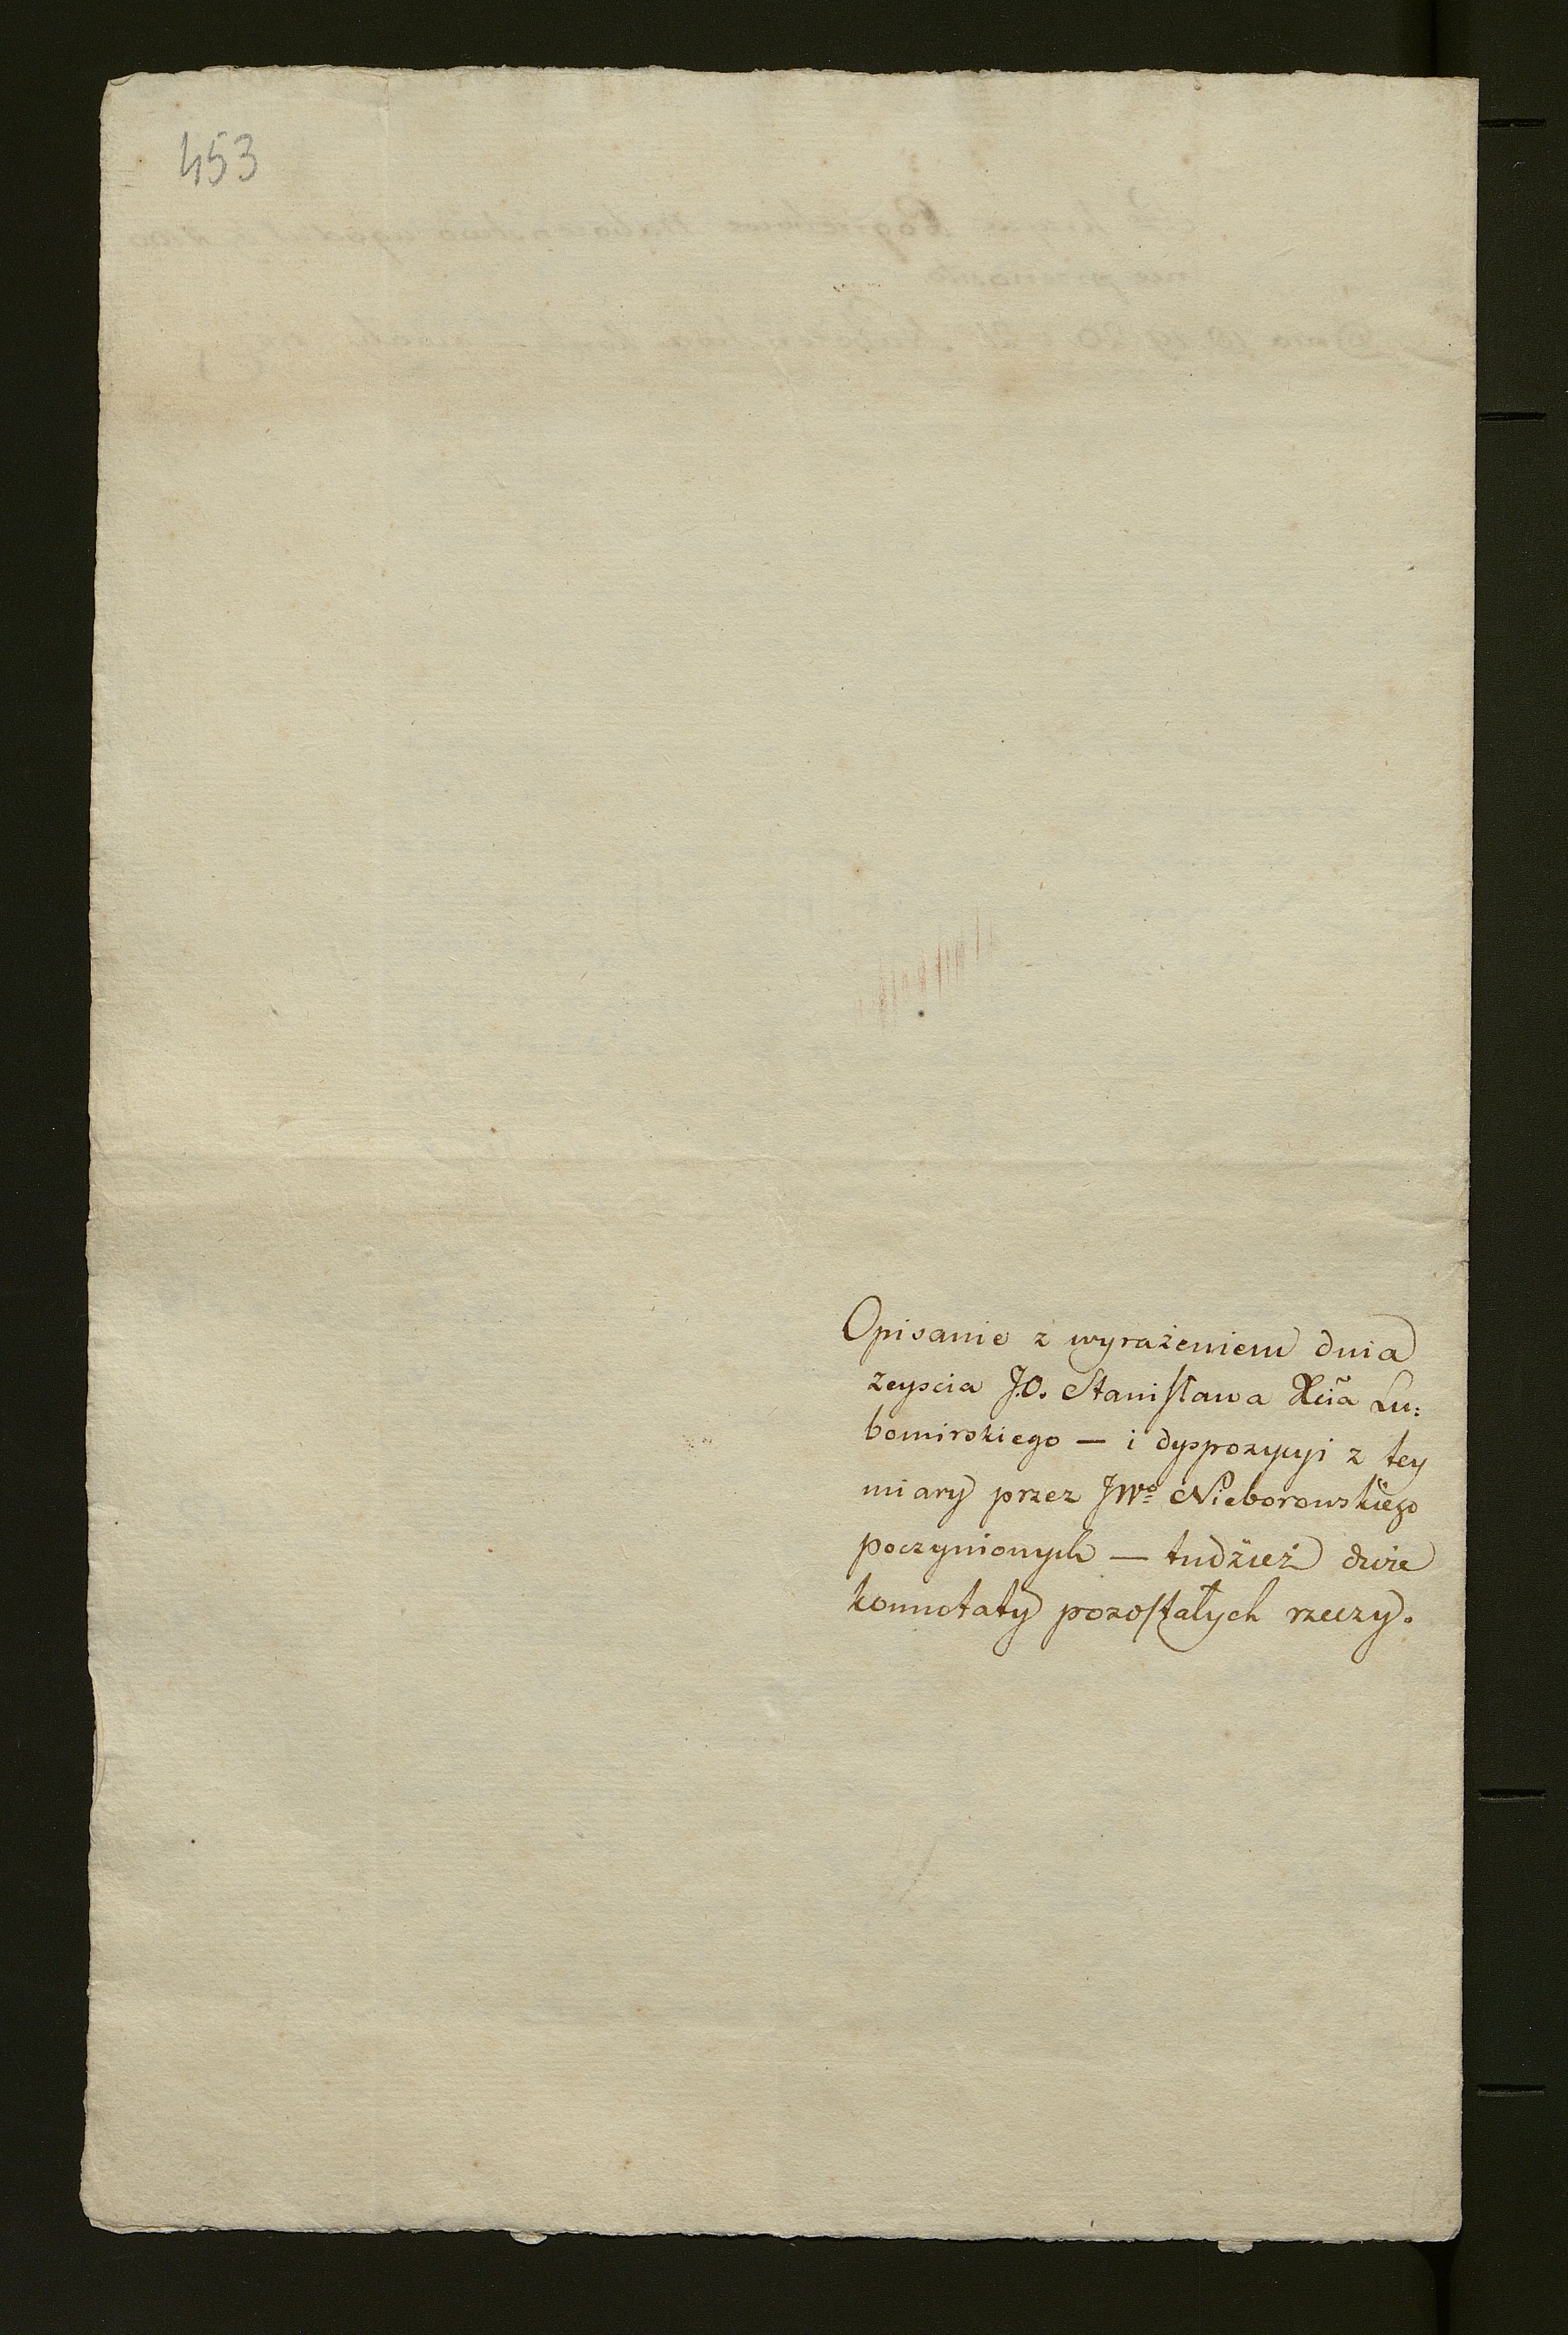 453
Opisanie z wyrażeniem dnia
zeyscia J.O. Stanisława Xcia Lu:
bomirskiego — i dyspozycyi z tey
miary przez JWo Nieborowskiego
poczynionych — tudzież dwie
konnotaty pozostałych rzeczy.